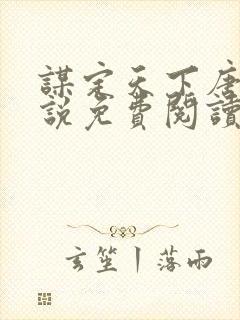 謀定天下唐
說免費閱讀
玄笙丨落雨